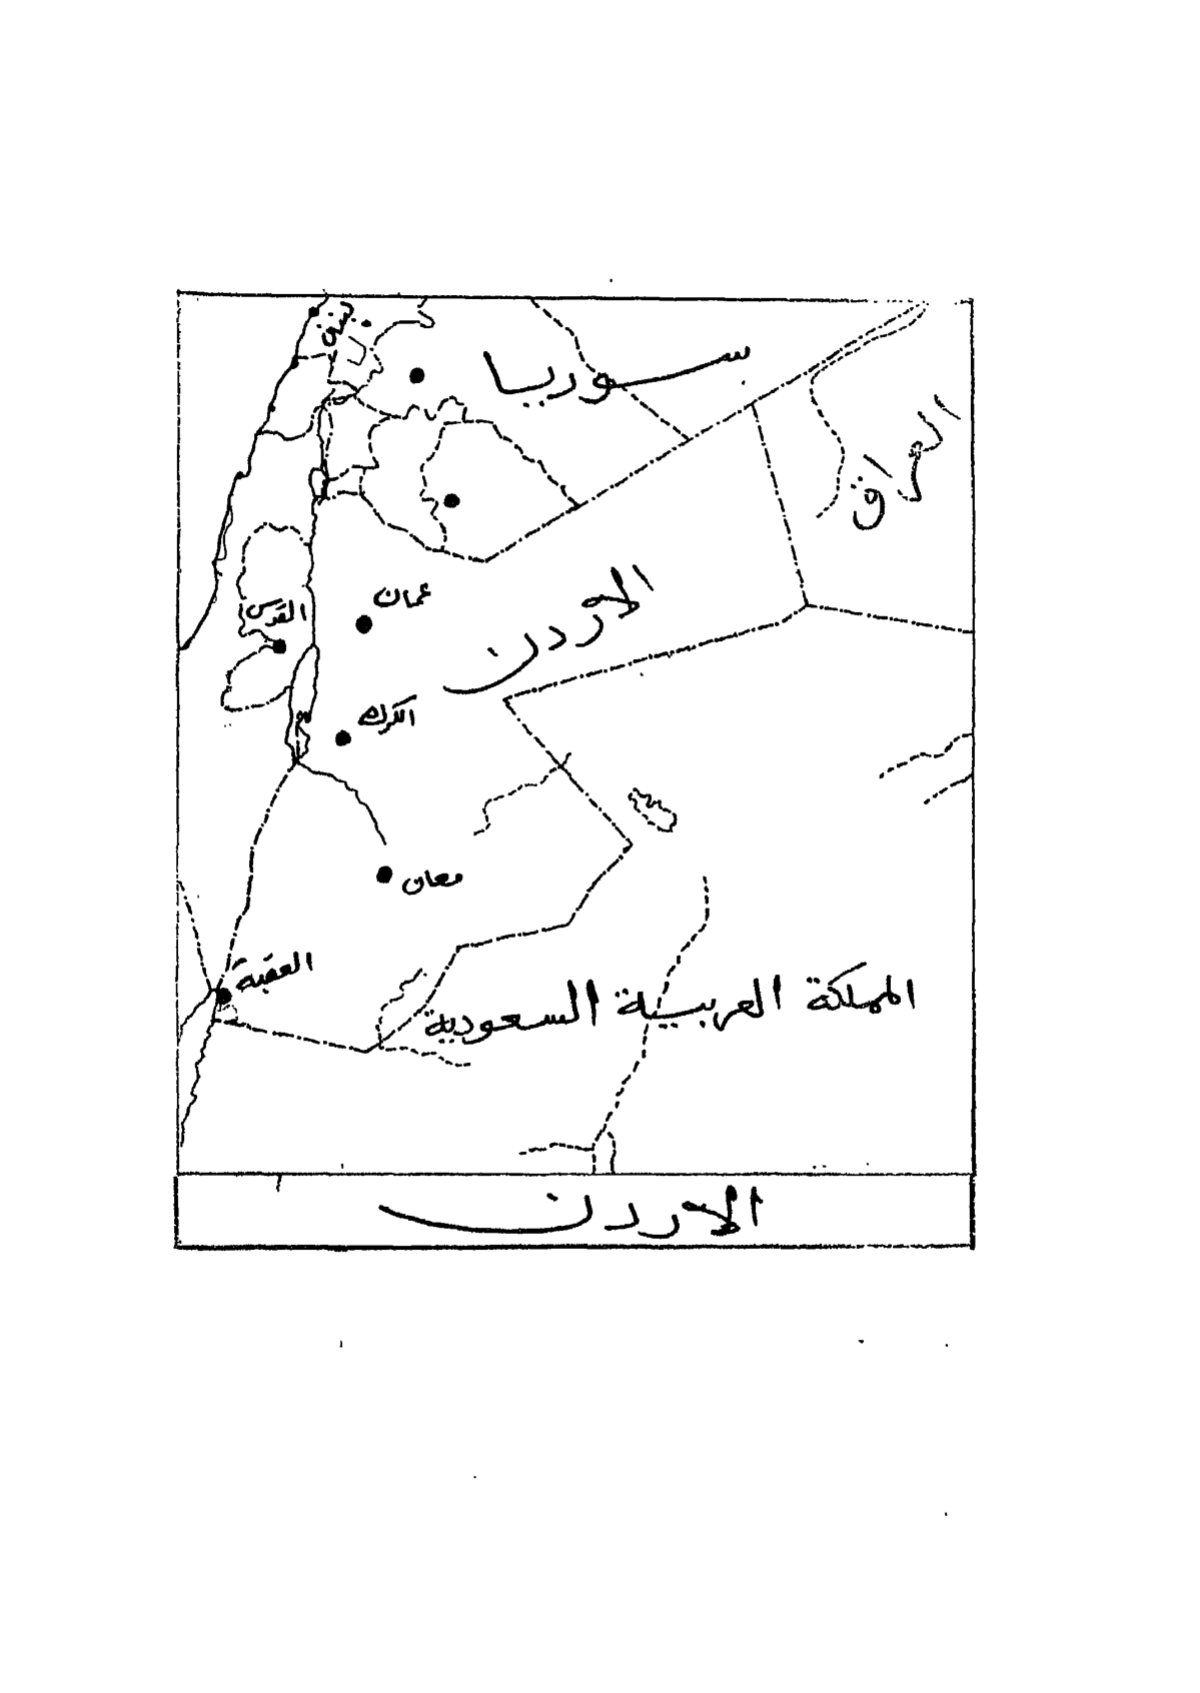 سوريا
العراق
الاردن
عمان
القدس
الكرك
معان
العقبة
المملكة العربية السعودية
الاردن